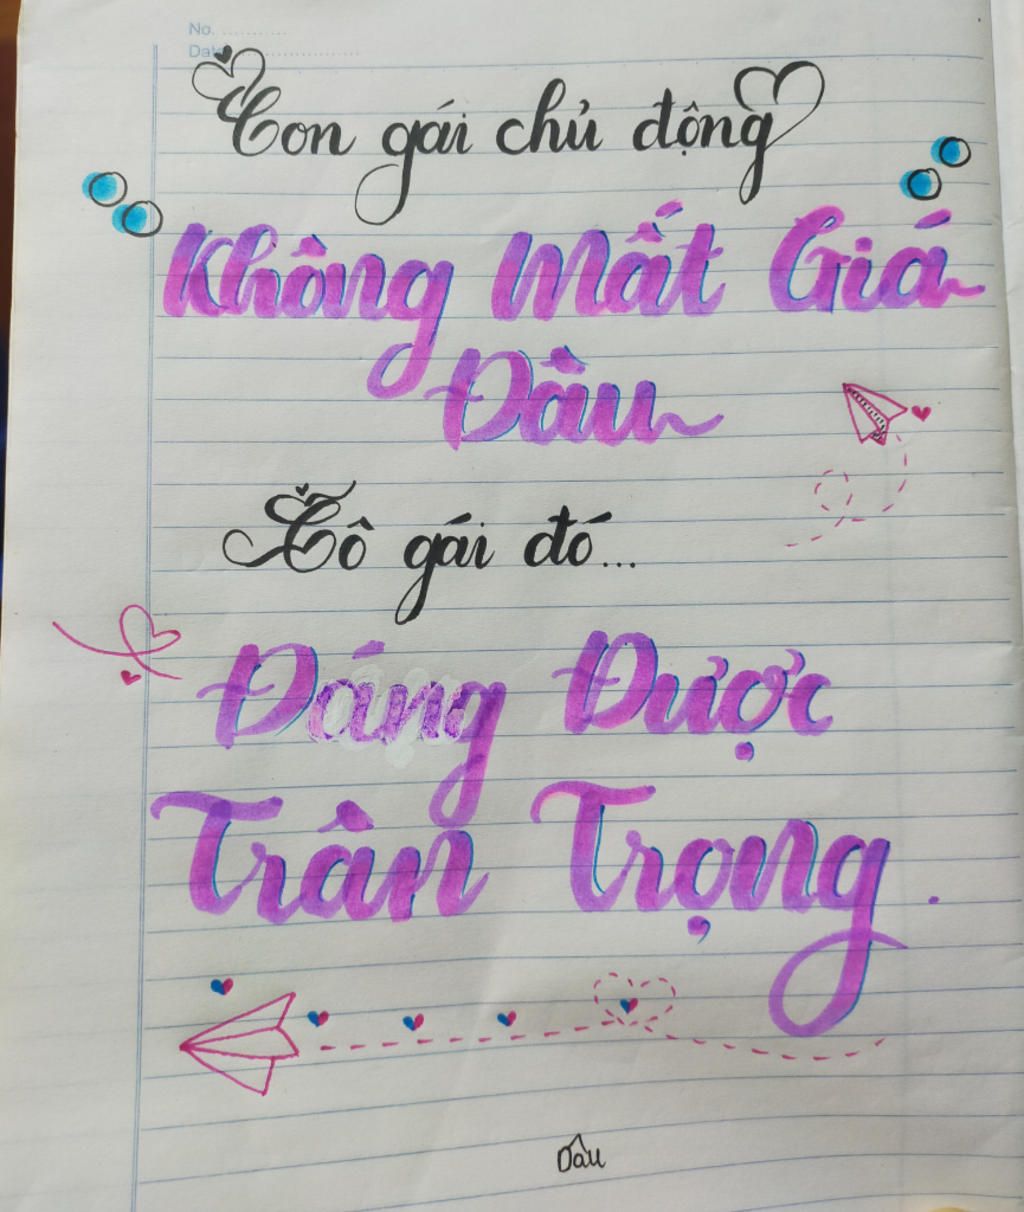 No.
Date
Con gái chủ động
Không Mất Giá
Đâu
Cô gái đó...
Đáng Được
Trân Trọng.
Dâu